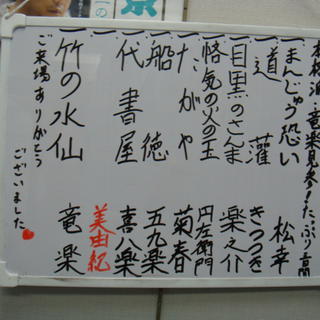 本格派・竜楽見参!たっぷり
一、まんじゅう恐い 松幸
一、道灌 きつつき
一、目黒のさんま 楽之介
一、悋気の火の玉 円左衛門
一、たがや 菊春
一、船徳 五九楽
一、代書屋 喜八楽
美由紀
一、竹の水仙 竜楽
ご来場ありがとう
ございました